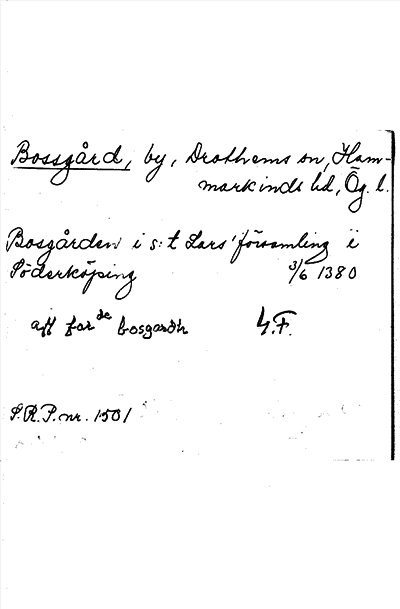 Bossgård, by, Drothems sn, Ham-
markinds hd, Ög. l.
Bosgården i s:t Lars' församling i
Söderköping 3/6 1380
aff for de bosgardh L.F.
S.R.P. nr. 1501